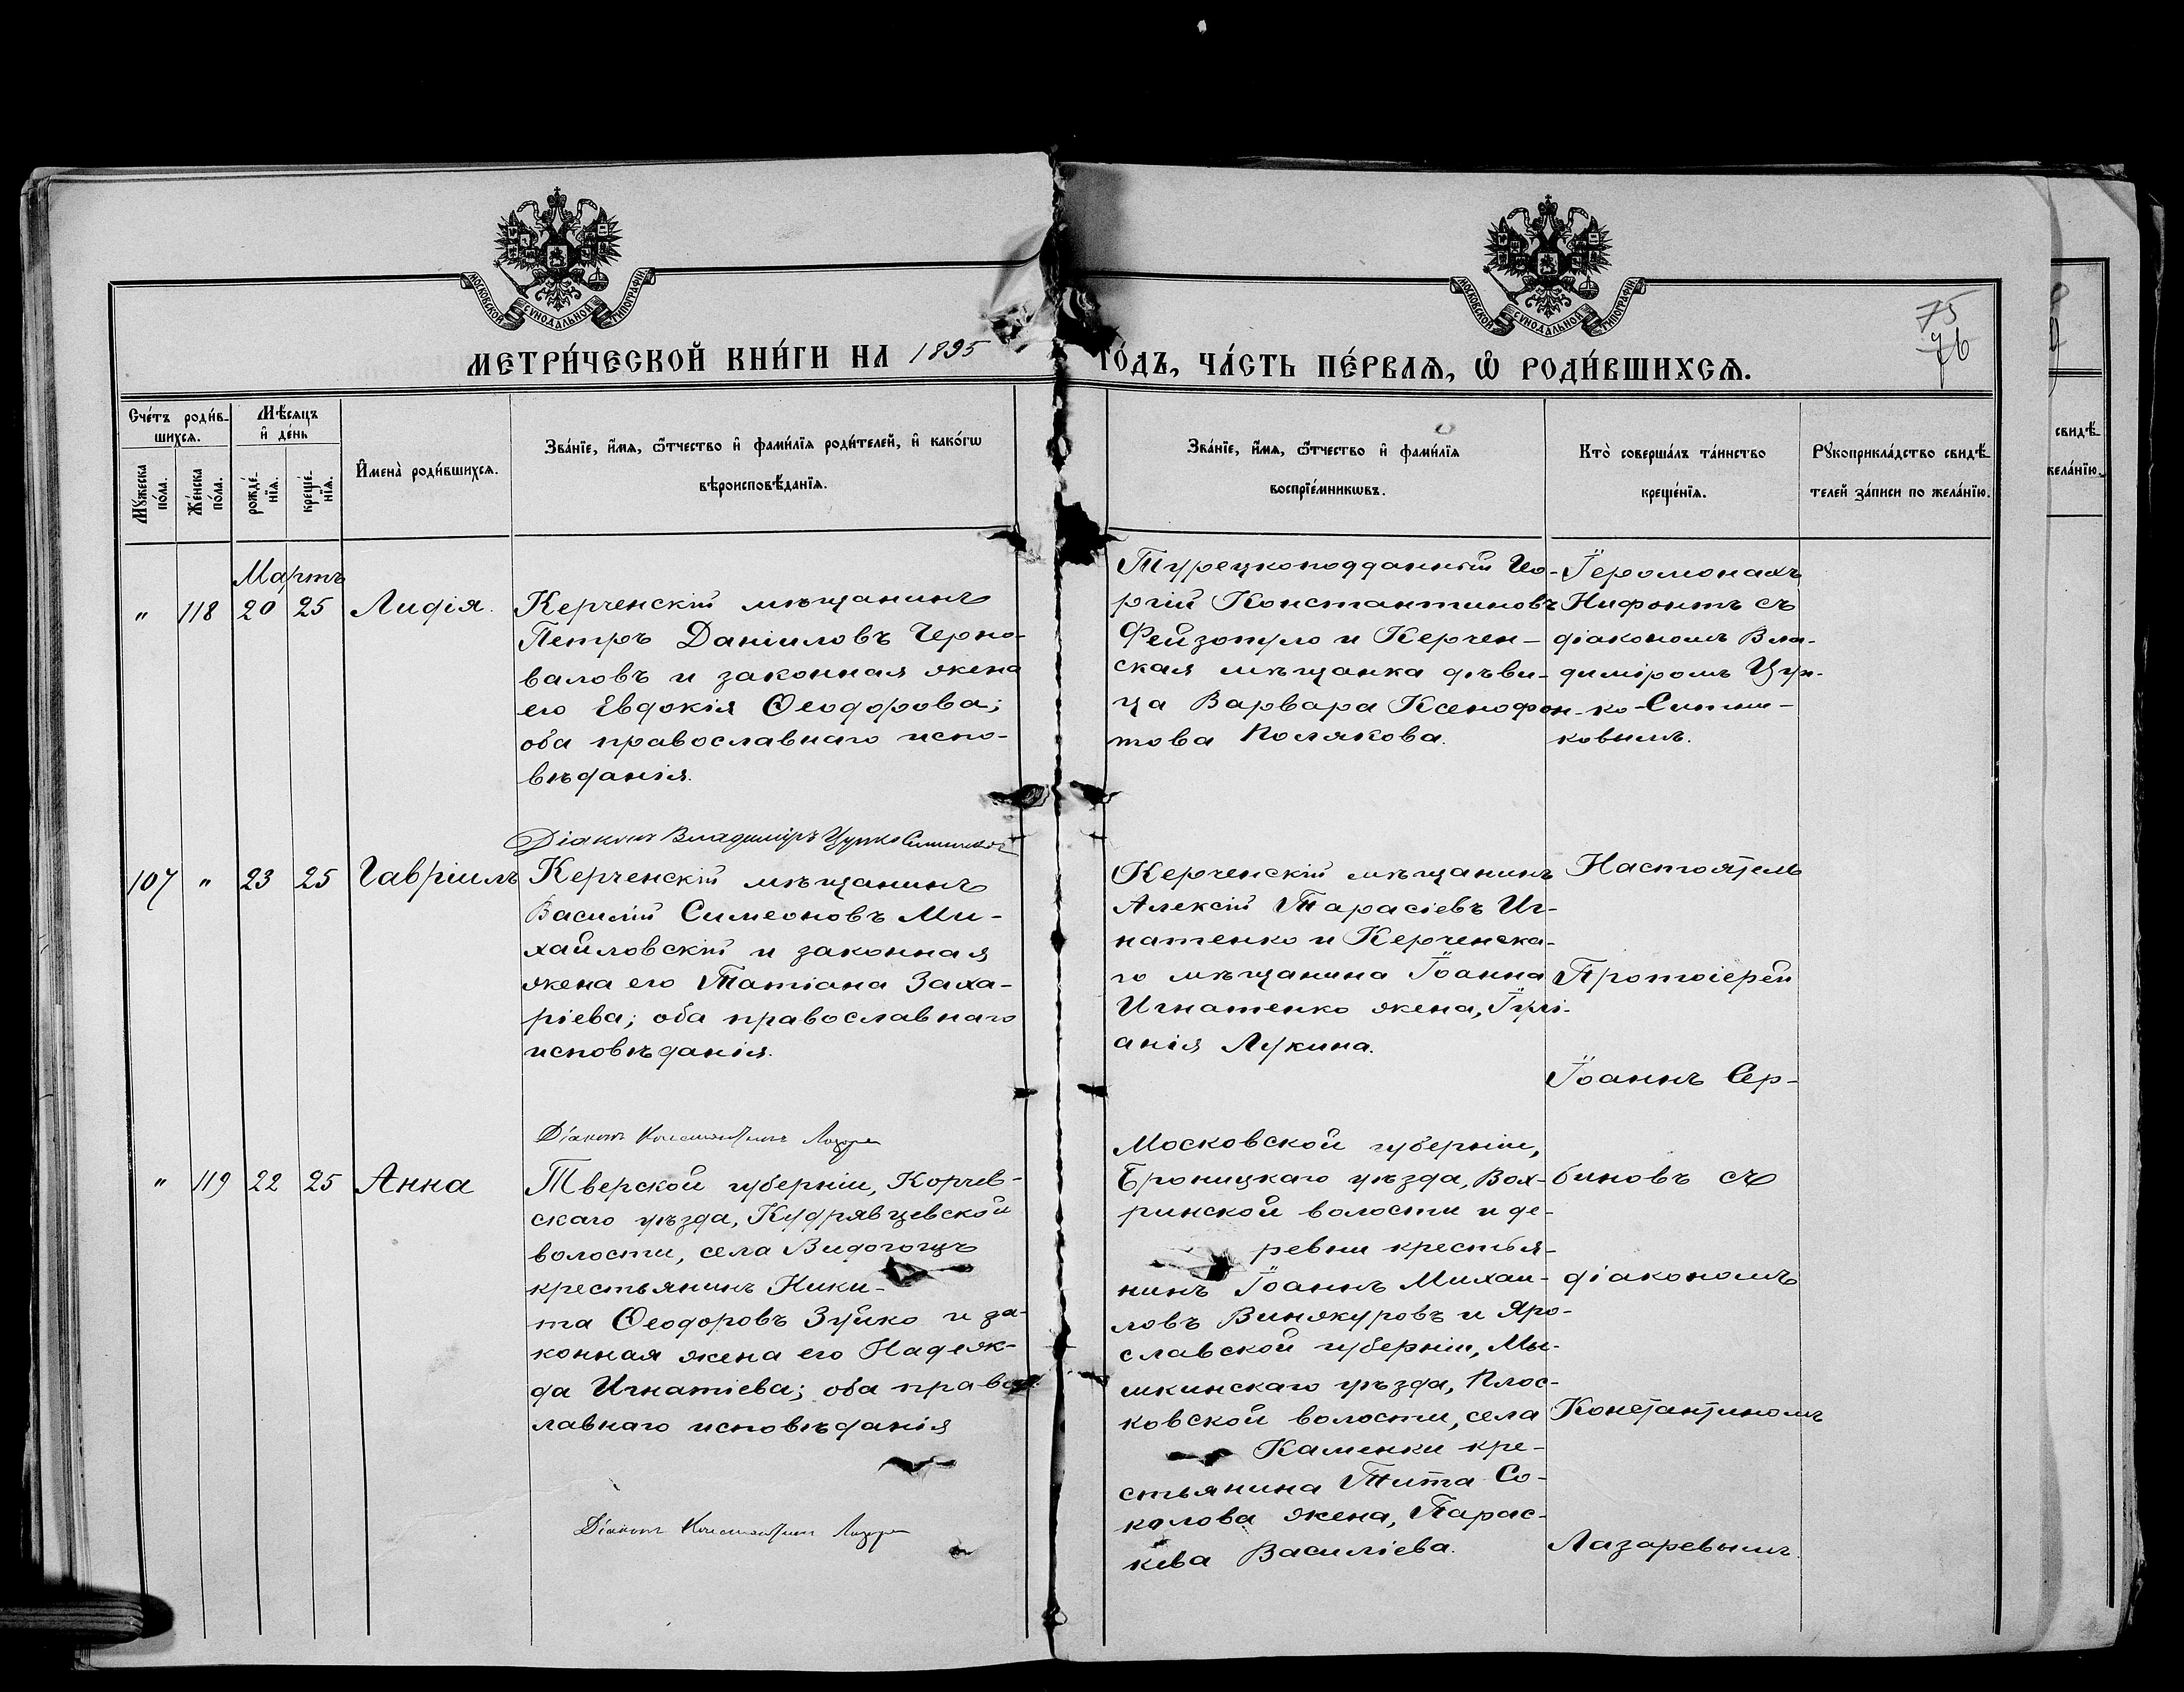 МОСКОВСКОЙ СУНОДАЛЬНОЙ ТИПОГРАФІИ
МОСКОВСКОЙ СУНОДАЛЬНОЙ ТИПОГРАФІИ
75
76
МЕТРИ́ЧЕСКОЙ КНИ́ГИ НА 1895 ГО́ДЪ, ЧА́СТЬ ПЕ́РВАѦ, Ѡ҆ РОДИ́ВШИХСѦ.
Сче́тъ роди́в-
шихсѧ.
Мѣ́сѧцъ
и҆ де́нь
Мꙋ́жеска
по́ла.
Же́нска
по́ла.
рожде́-
нїѧ.
креще́-
нїѧ.
И҆мена̀ роди́вшихсѧ.
Зва́нїе, и҆́мѧ, ѻ҆́тчество и҆ фами́лїѧ роди́телей, и҆ како́гѡ
вѣроисповѣ́данїѧ.
Зва́нїе, и҆́мѧ, ѻ҆́тчество и҆ фами́лїѧ
воспрїе́мникѡвъ.
Кто̀ соверша́лъ та́инство
креще́нїѧ.
Рꙋкоприкла́дство свидѣ́-
телей за́писи по жела́нїю.
свидѣ́-
жела́нїю.
Мартъ
" 118 20 25 Лидія.
Керченскій мѣщанинъ
Петръ Даніиловъ Черно-
валовъ и законная жена
его Евдокія Ѳеодорова;
оба православнаго испо-
вѣданія.
Діаконъ Владиміръ Цурко-Ситниковъ
Турецкоподданный Ге-
ргій Константиновъ
Фейзопуло и Керчен-
ская мѣщанка дѣви-
ца Варвара Ксенофон-
това Полякова.
Іеромонахъ
Нифонтъ съ
діакономъ Вла-
диміромъ Цур-
ко-Ситни-
ковымъ.
107 " 23 25 Гавріилъ
Керченскій мѣщанинъ
Василій Симеоновъ Ми-
хайловскій и законная
жена его Татіана Заха-
ріева; оба православнаго
исповѣданія.
Діаконъ Константинъ Лазаре
Керченскій мѣщанинъ
Алексій Тарасіевъ Иг-
натенко и Керченска-
го мѣщанина Іоанна
Игнатенко жена, Іулі-
анія Лукина.
Настоятель
Протоіерей
Іоаннъ Сер-
" 119 22 25 Анна
Тверской губерніи, Корчев-
скаго уѣзда, Кудрявцевской
волости, села Видогощъ
крестьянинъ Ники-
та Ѳеодоровъ Зуйко и за-
конная жена его Надеж-
да Игнатіева; оба правос-
лавнаго исповѣданія
Діаконъ Константинъ Лазаре
Московской губерніи,
Броницкаго уѣзда, Вох-
ринской волости и де-
ревни крестья-
нинъ Іоаннъ Михаи-
ловъ Винокуровъ и Яро-
славской губерніи, Мы-
шкинскаго уѣзда, Плос-
ковской волости, села
Каменки кре-
стьянина Тита Со-
колова жена, Парас-
кева Василіева.
биновъ съ
діакономъ
Константиномъ
Лазаревымъ.